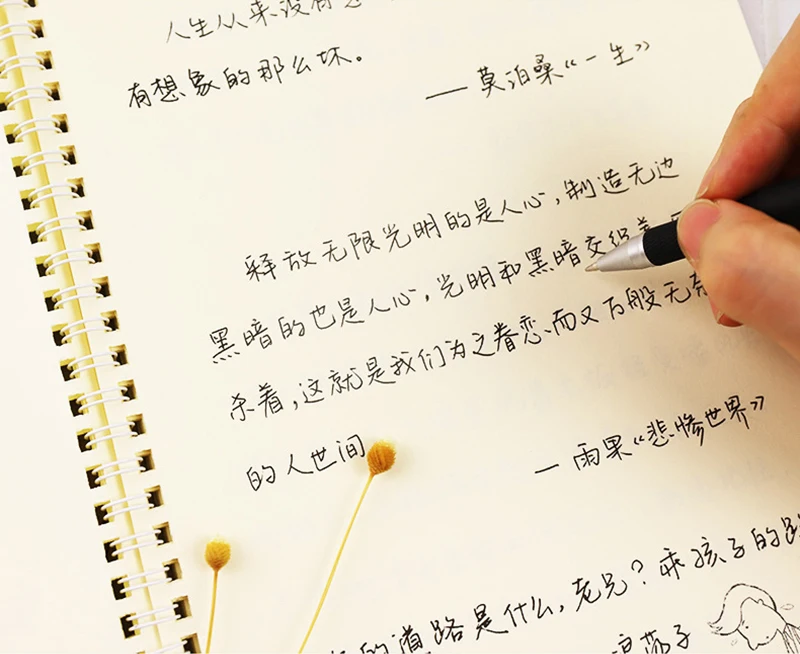 人生从来没有想
有想象的那么坏。
—— 莫泊桑《一生》
释放无限光明的是人心,制造无边
黑暗的也是人心,光明和黑暗交织着
杀着,这就是我们为之眷恋而又万般无奈
的人世间
— 雨果《悲惨世界》
的道路是什么,老兄?乖孩子的路